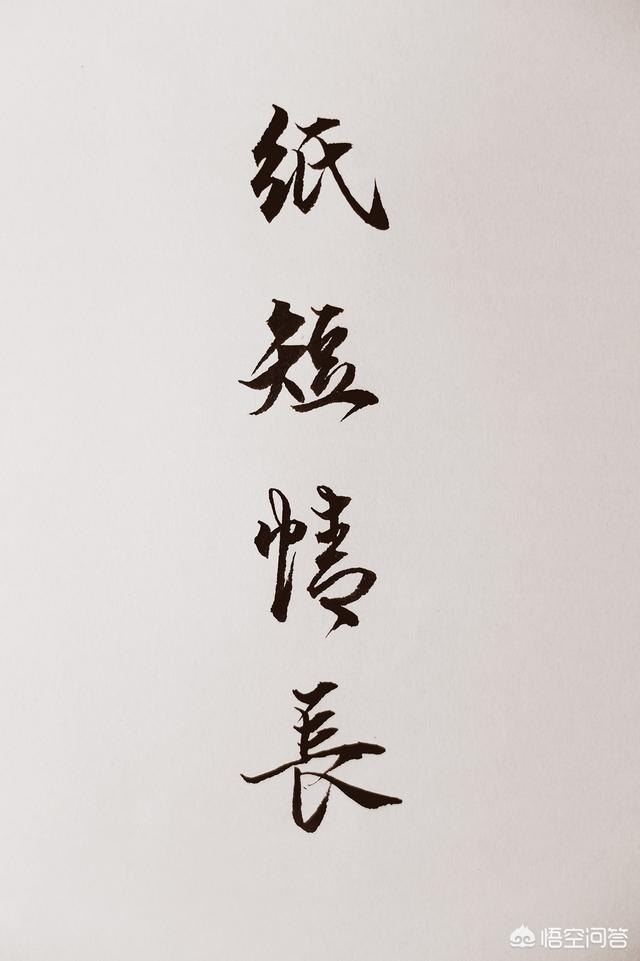 纸短情長
悟空问答